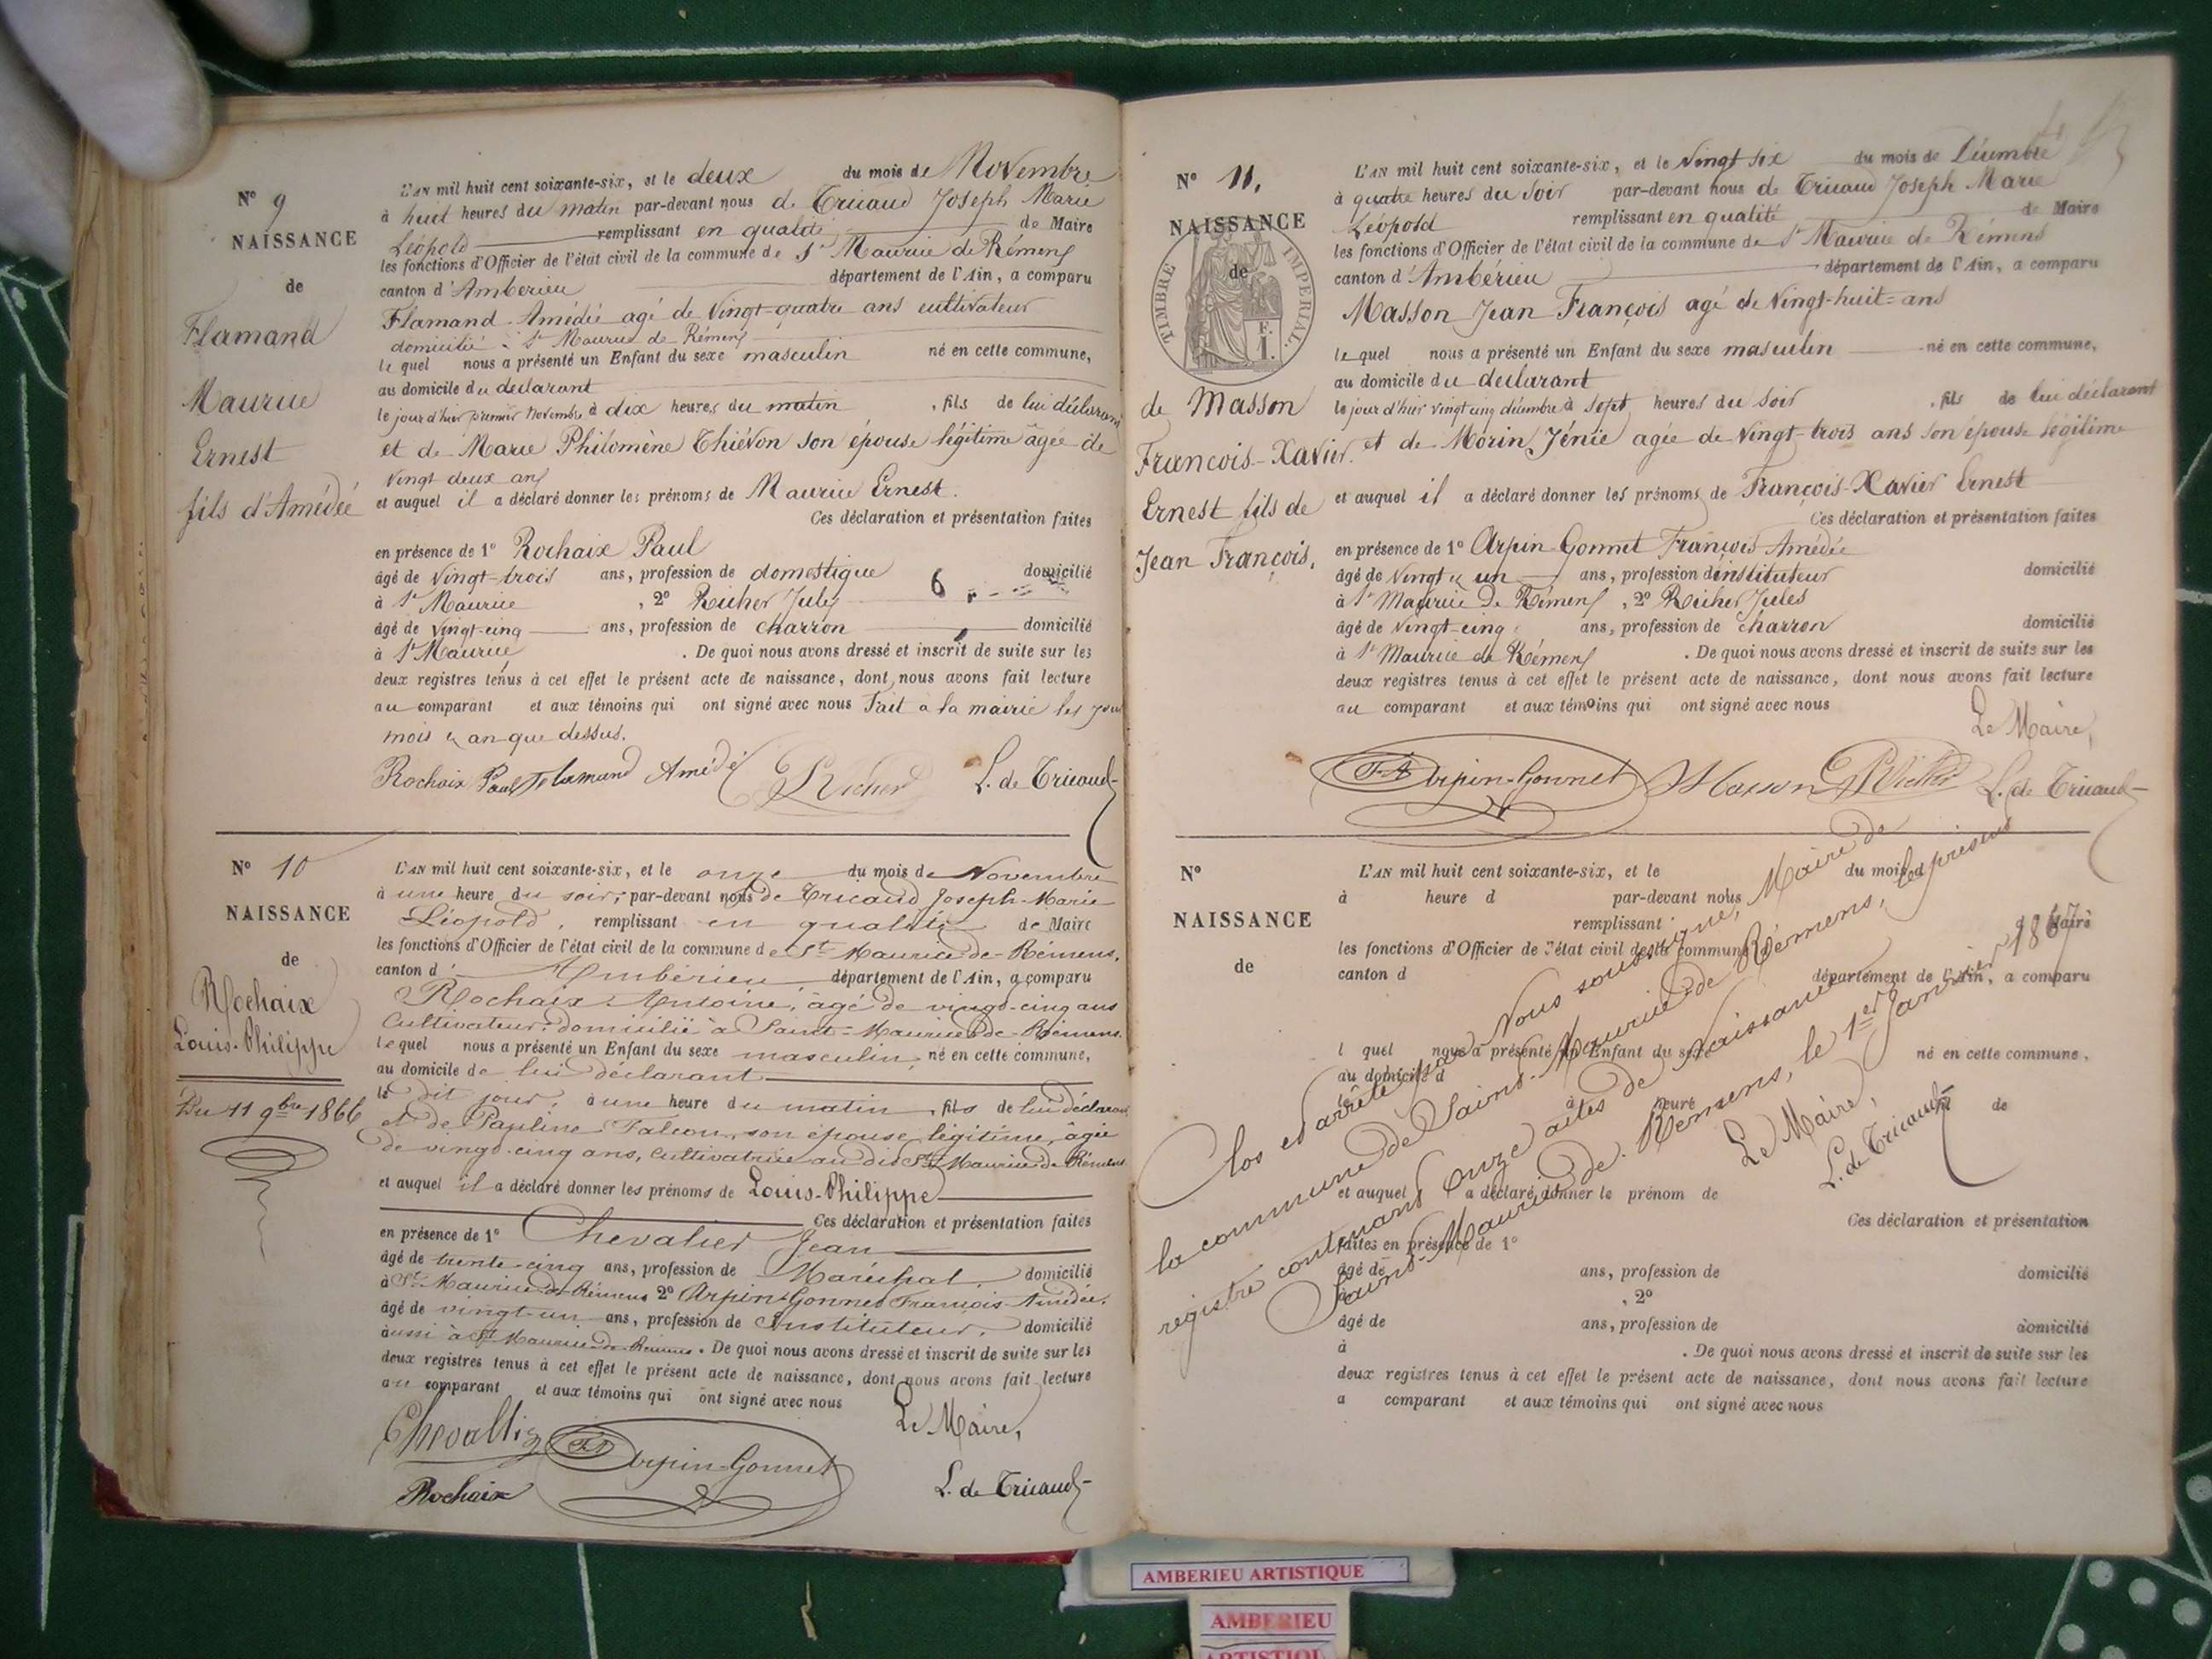 N° 9
NAISSANCE
de
Flamand
Maurice
Ernest
fils d'Amédée
L'AN mil huit cent soixante-six, et le deux du mois de Novembre
à huit heures du matin par-devant nous de Tricaud Joseph Marie
Léopold remplissant en qualité de Maire
les fonctions d'Officier de l'état civil de la commune de St Maurice de Rémens
canton d'Ambérieu département de l'Ain, a comparu
Flamand Amédée agé de Vingt-quatre ans cultivateur
domicilié à St Maurice de Rémens
lequel nous a présenté un Enfant du sexe masculin né en cette commune,
au domicile du déclarant
le jour d'hier premier Novembre à dix heures du matin, fils de lui déclarant
et de Marie Philomène Thiévon son épouse légitime âgée de
Vingt deux ans
et auquel il a déclaré donner les prénoms de Maurice Ernest.
Ces déclaration et présentation faites
en présence de 1° Rochaix Paul
âgé de Vingt-trois ans, profession de domestique domicilié
à St Maurice, 2° Richer Jules
âgé de Vingt-cinq ans, profession de charron domicilié
à St Maurice. De quoi nous avons dressé et inscrit de suite sur les
deux registres tenus à cet effet le présent acte de naissance, dont nous avons fait lecture
au comparant et aux témoins qui ont signé avec nous Fait à la mairie les jour
mois & an que dessus.
Rochaix Paul Flamand Amédé Richer L. de Tricaud
N° 10
NAISSANCE
de
Rochaix
Louis-Philippe
Du 11 9bre 1866
L'AN mil huit cent soixante-six, et le onze du mois de Novembre
à une heure du soir, par-devant nous de Tricaud Joseph-Marie
Léopold, remplissant en qualité de Maire
les fonctions d'Officier de l'état civil de la commune de St-Maurice-de-Rémens,
canton d'Ambérieu département de l'Ain, a comparu
Rochaix Antoine, âgé de vingt-cinq ans
Cultivateur, domicilié à Saint-Maurice-de-Rémens.
lequel nous a présenté un Enfant du sexe masculin, né en cette commune,
au domicile de lui déclarant
le dit jour, à une heure du matin, fils de lui déclarant
et de Pauline Falcon, son épouse légitime, âgée
de vingt-cinq ans, Cultivatrice au dit St Maurice de Rémens
et auquel il a déclaré donner les prénoms de Louis-Philippe
Ces déclaration et présentation faites
en présence de 1° Chevalier Jean
âgé de trente-cinq ans, profession de Maréchal, domicilié
à St-Maurice-de-Rémens 2° Arpin-Gonnet François-Amédée,
âgé de vingt-un ans, profession de Instituteur, domicilié
aussi à St-Maurice-de-Rémens. De quoi nous avons dressé et inscrit de suite sur les
deux registres tenus à cet effet le présent acte de naissance, dont nous avons fait lecture
au comparant et aux témoins qui ont signé avec nous
Le Maire,
Chevallier F.A. Arpin-Gonnet
Rochaix L. de Tricaud
N° 11.
NAISSANCE
TIMBRE IMPERIAL.
de
de Masson
François-Xavier
Ernest fils de
Jean François.
L'AN mil huit cent soixante-six, et le Vingt six du mois de Décembre
à quatre heures du Soir par-devant nous de Tricaud Joseph Marie
Léopold remplissant en qualité de Maire
les fonctions d'Officier de l'état civil de la commune de St Maurice de Rémens
canton d'Ambérieu département de l'Ain, a comparu
Masson Jean François agé de Vingt-huit-ans
lequel nous a présenté un Enfant du sexe masculin né en cette commune,
au domicile du déclarant
le jour d'hier vingt cinq décembre à Sept heures du Soir, fils de lui déclarant
et de Morin Jénie agée de Vingt-trois ans son épouse légitime
et auquel il a déclaré donner les prénoms de François-Xavier Ernest
Ces déclaration et présentation faites
en présence de 1° Arpin-Gonnet François Amédée
âgé de Vingt & un ans, profession d'instituteur domicilié
à St Maurice de Rémens, 2° Richer Jules
âgé de Vingt-cinq ans, profession de charron domicilié
à St Maurice de Rémens. De quoi nous avons dressé et inscrit de suite sur les
deux registres tenus à cet effet le présent acte de naissance, dont nous avons fait lecture
au comparant et aux témoins qui ont signé avec nous
Le Maire,
F-A Arpin-Gonnet Masson Richer L. de Tricaud
N°
NAISSANCE
de
L'AN mil huit cent soixante-six, et le du mois d
à heure d par-devant nous
remplissant Maire
les fonctions d'Officier de l'état civil de la commune d
canton d département de l'Ain, a comparu
l quel nous a présenté un Enfant du sexe né en cette commune,
au domicile d
le à heure de
et auquel a déclaré donner le prénom de
Ces déclaration et présentation
faites en présence de 1°
âgé de ans, profession de domicilié
à, 2°
âgé de ans, profession de domicilié
à. De quoi nous avons dressé et inscrit de suite sur les
deux registres tenus à cet effet le présent acte de naissance, dont nous avons fait lecture
a comparant et aux témoins qui ont signé avec nous
Clos et arrêté par Nous soussigné, Maire de
la commune de Saint-Maurice-de-Rémens, le présent
registre contenant onze actes de Naissance
Saint-Maurice-de-Rémens, le 1er Janvier 1867
Le Maire,
L. de Tricaud
AMBERIEU ARTISTIQUE
AMBERIEU
ARTISTIQU